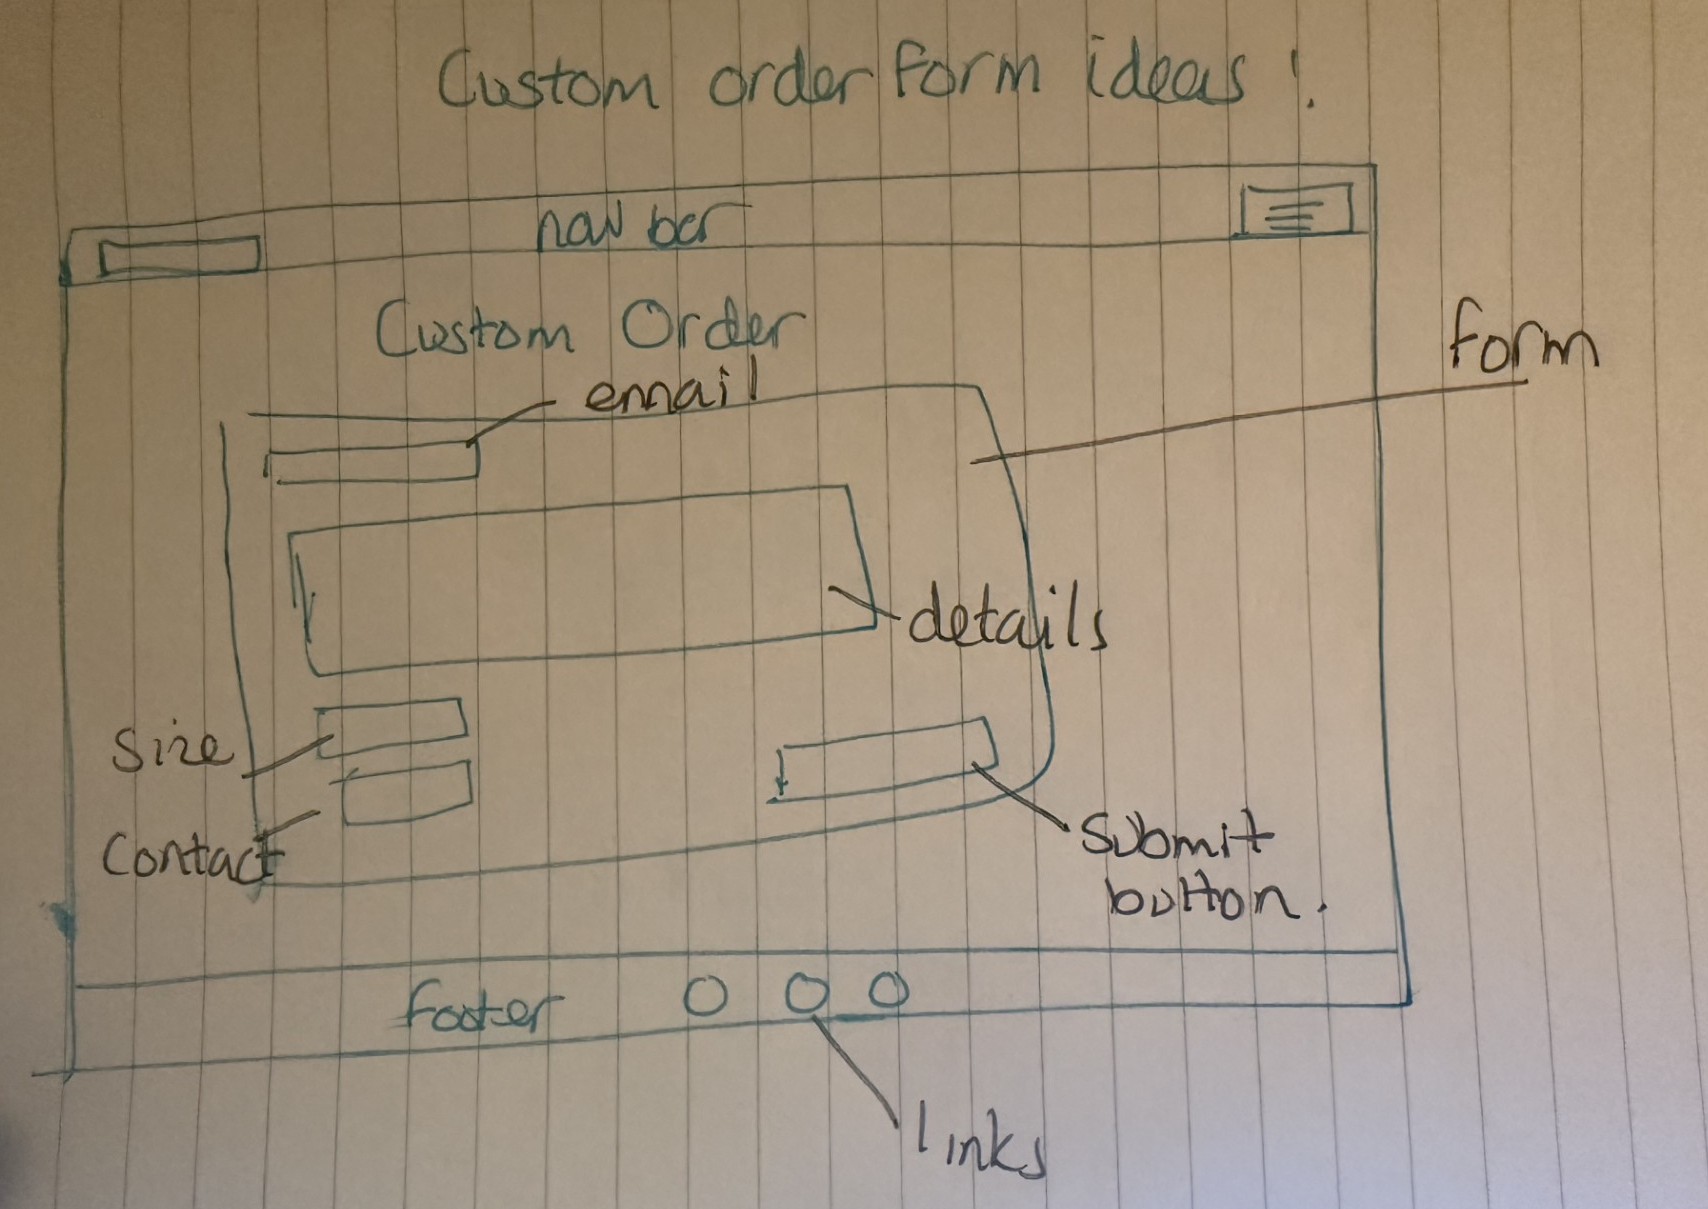 Custom order form ideas!
nav bar
Custom Order
form
email
details
Size
Contact
Submit
button.
footer
links